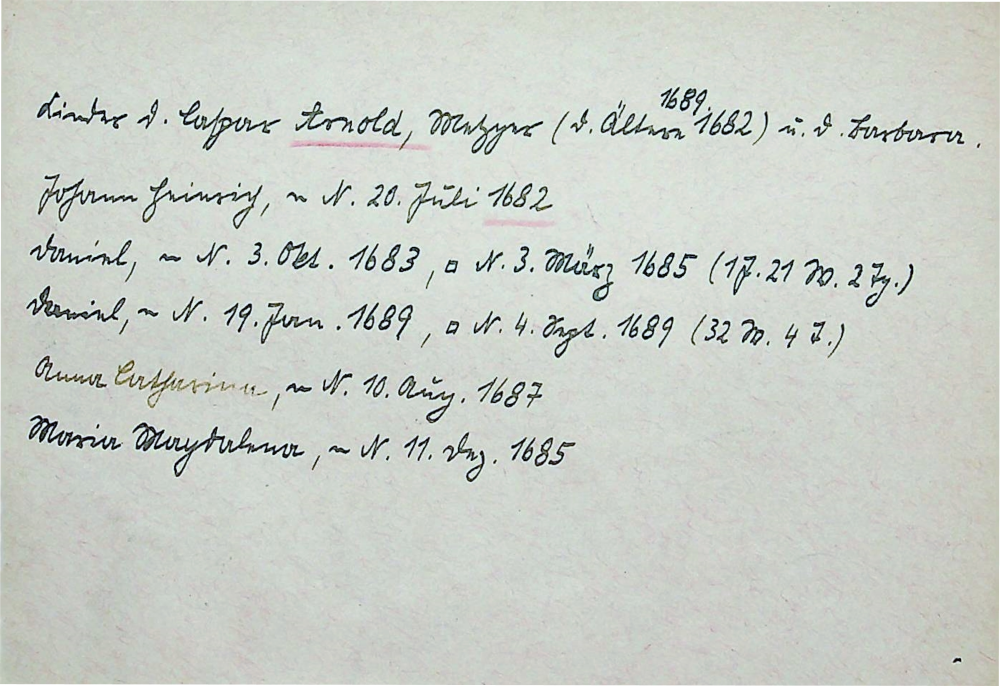 1689.
Kinder d. Caspar Arnold, Metzger (d. Ältere 1682) u. d. Barbara.
Johann Heinrich, ~ N. 20. Juli 1682
Daniel, ~ N. 3. Okt. 1683, □ N. 3. März 1685 (1 J. 21 W. 2 Tg.)
Daniel, ~ N. 19. Jan. 1689, □ N. 4. Sept. 1689 (32 W. 4 T.)
Anna Catharina, ~ N. 10. Aug. 1687
Maria Magdalena, ~ N. 11. Dez. 1685